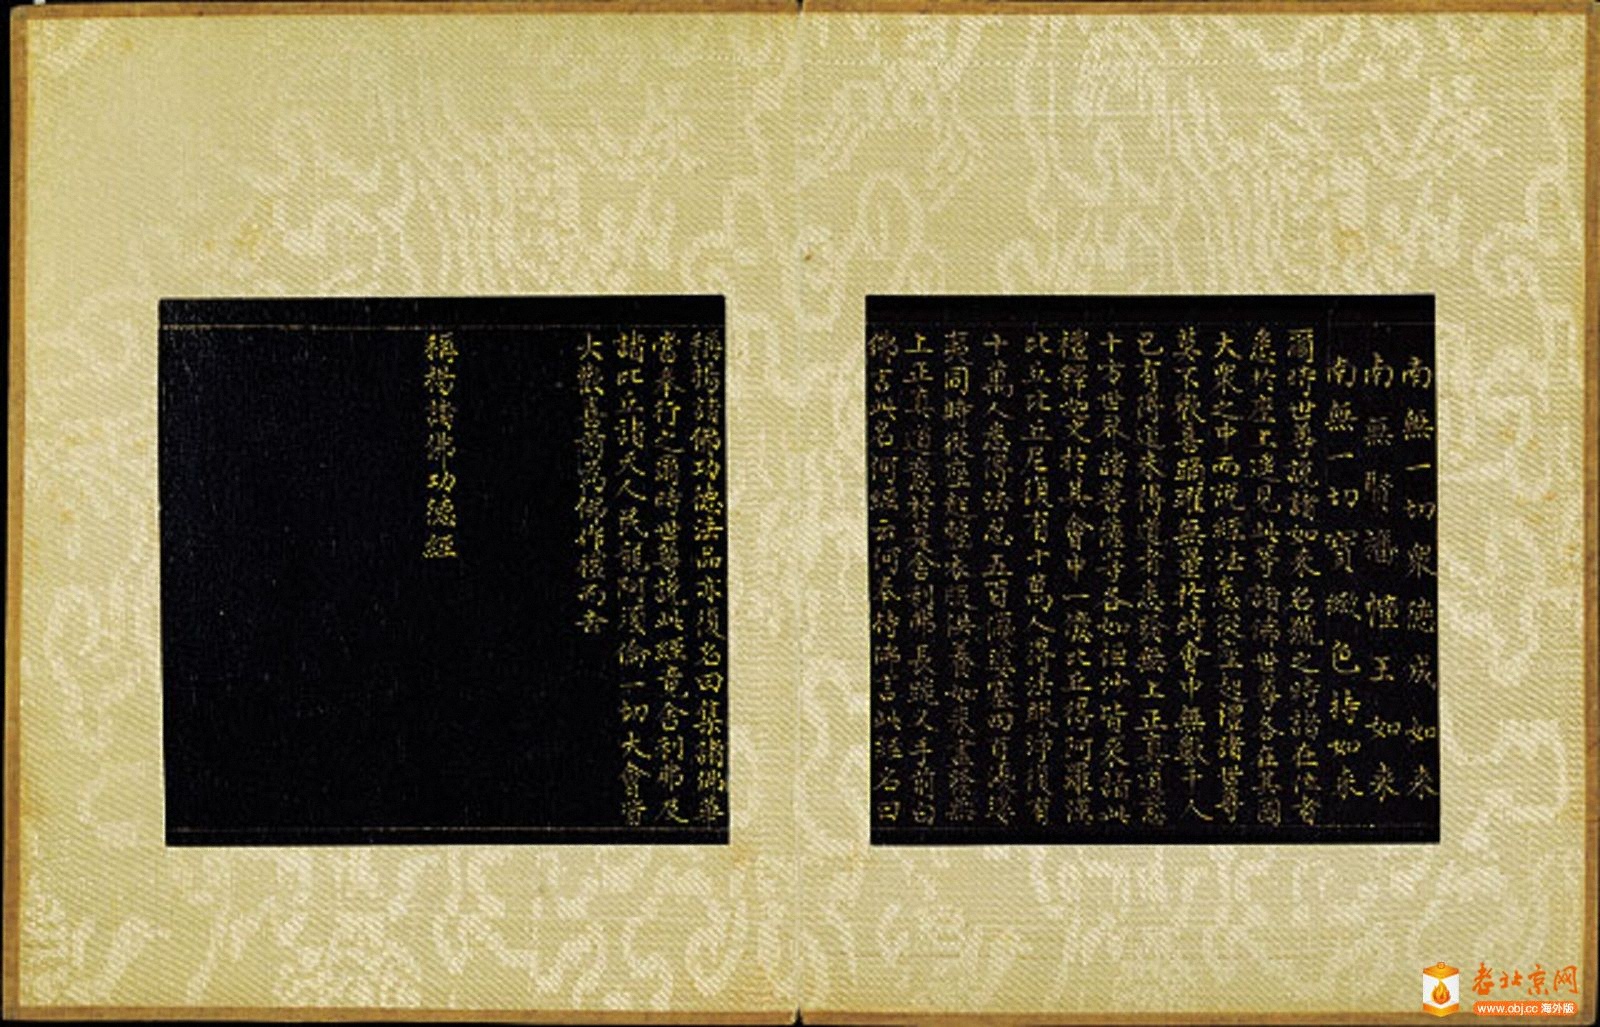 南無一切眾德成如來
南無賢幡幢王如來
南無一切寶緻色持如來
爾時世尊說諸如來名號之時諸在佛者
悉於座上遙見此等諸佛世尊各在其國
大眾之中而說經法悉從座起禮諸世尊
莫不歡喜踊躍無量於時會中無數千人
已有得道未得道者悉發無上正真道意
十方世界諸菩薩等各如恒沙皆來詣此
禮釋迦文於其會中一億比丘得阿羅漢
比丘比丘尼復有十萬人得法眼淨復有
十萬人悉得法忍五百優婆塞四百優婆
夷同時從座起脫衣服供養如來盡發無
上正真道意於是舍利弗長跪叉手前白
佛言此名何經云何奉持佛言此經名曰
稱揚諸佛功德法品亦復名曰集諸佛華
當奉行之爾時世尊說此經竟舍利弗及
諸比丘諸天人民龍阿須倫一切大會皆
大歡喜前為佛作禮而去
稱揚諸佛功德經
老北京网
www.obj.cc 海外版